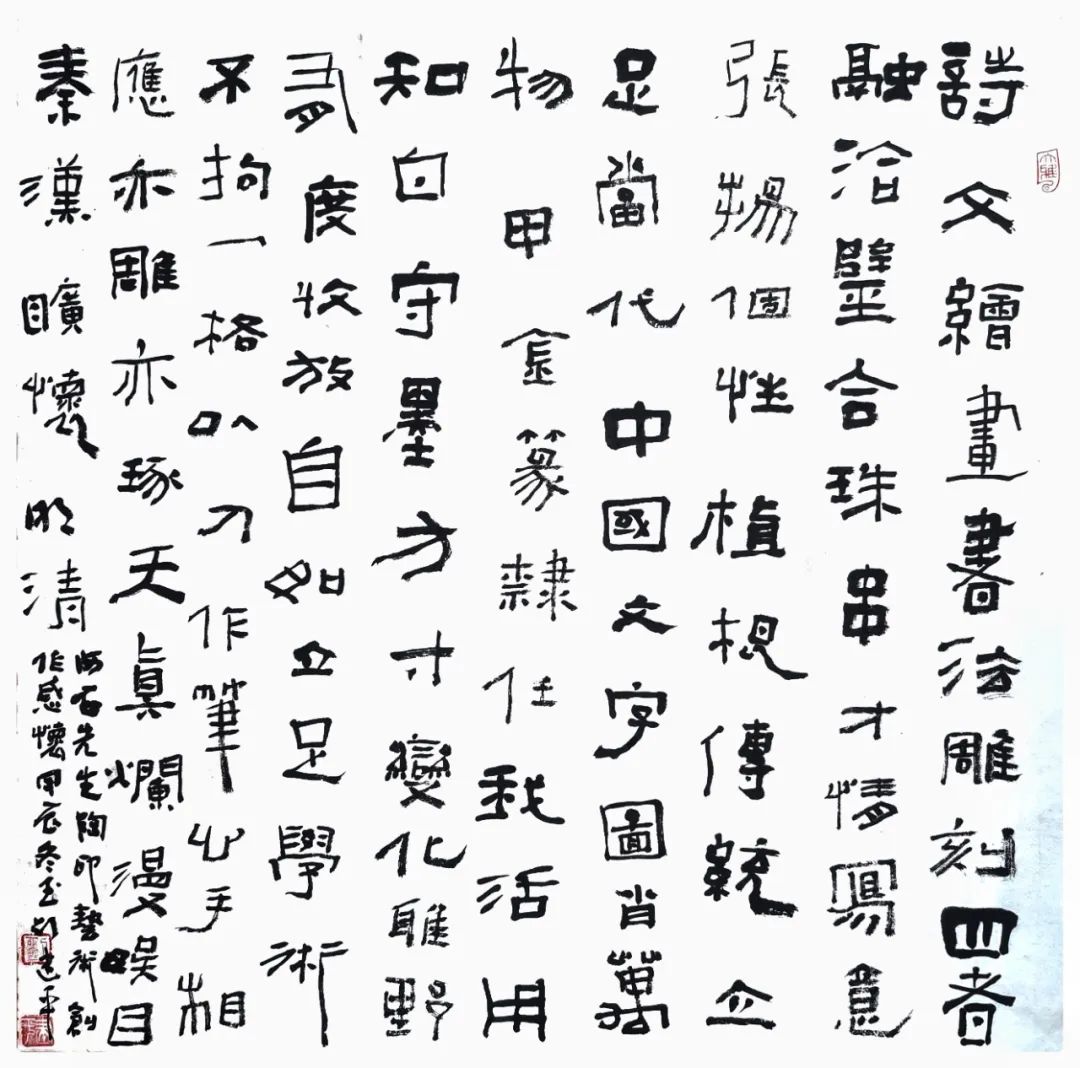 詩文繪畫書法雕刻四者
融洽璧合珠串才情寫意
張揚個性植根傳統立
足當代中國文字圖肖萬
物甲金篆隸任我活用
知白守墨方寸變化雅野
有度收放自如立足學術
不拘一格以刀作筆心手相
應亦雕亦琢天眞爛漫娛目
秦漢矌懷明清
石先生陶印藝術創
作感懷甲辰冬至建平